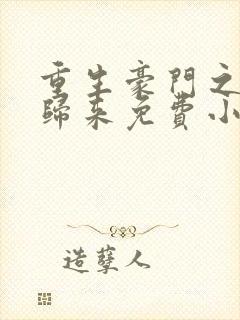 重生豪門之
歸來免費小
造孽人